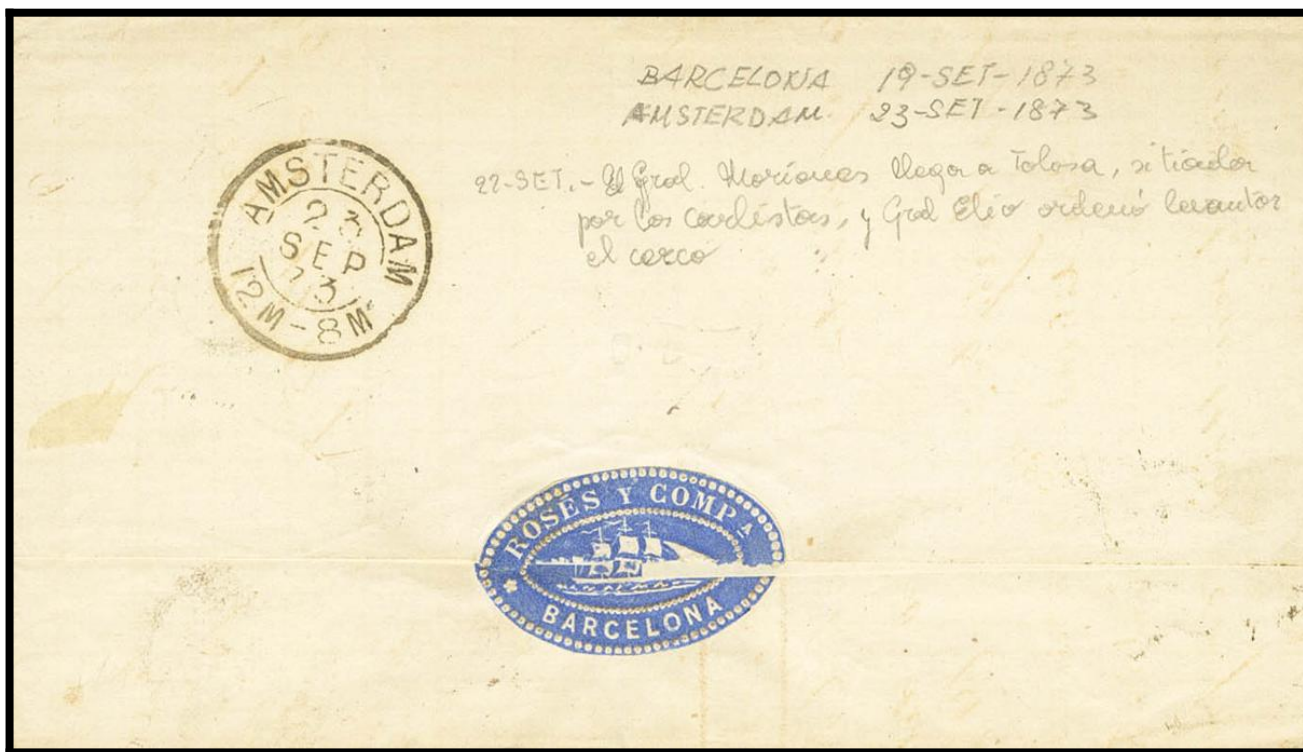 BARCELONA 19-SET-1873
AMSTERDAM. 23-SET-1873
22-SET.- El Gral. Moriones llega a Tolosa, sitiada
por los carlistas, y Gral Elio ordenó levantar
el cerco
AMSTERDAM
23
SEP
73
12M-8M
ROSÉS Y COMPA
BARCELONA